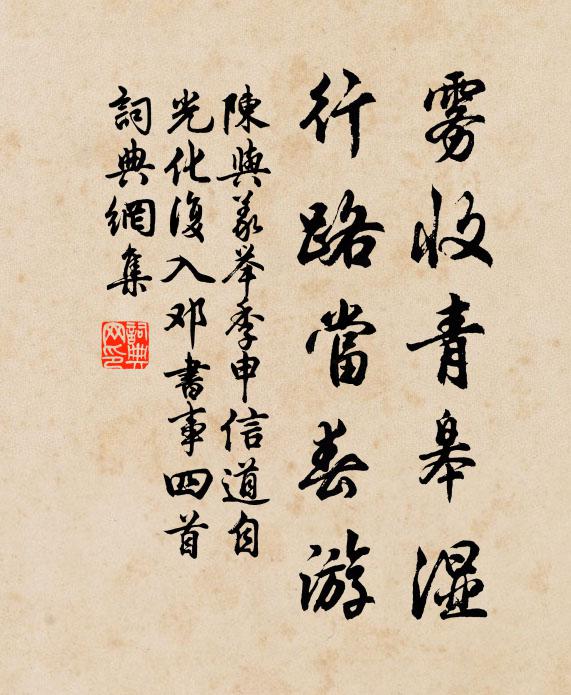 雾收青皋湿
行路當春游
陳與義举季申信道自
光化復入邓書事四首
詞典網集
詞典
网印